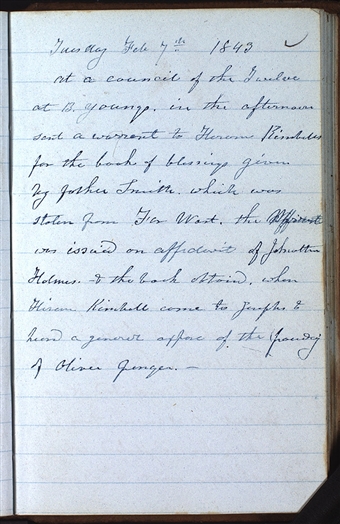 Tuesday Feb 7th 1843
at a council of the Twelve
at B. Youngs. in the afternoon
sent a warrent to Hiram Kimballs
for the book of blessings given
by father Smith. which was
stolen from Far West. the
was issued on affidavit of Johnathan
Holmes. & the book obtaind. when
Hiram Kimball came to Josephs &
heard a general expose of the
of Oliver Granger. —